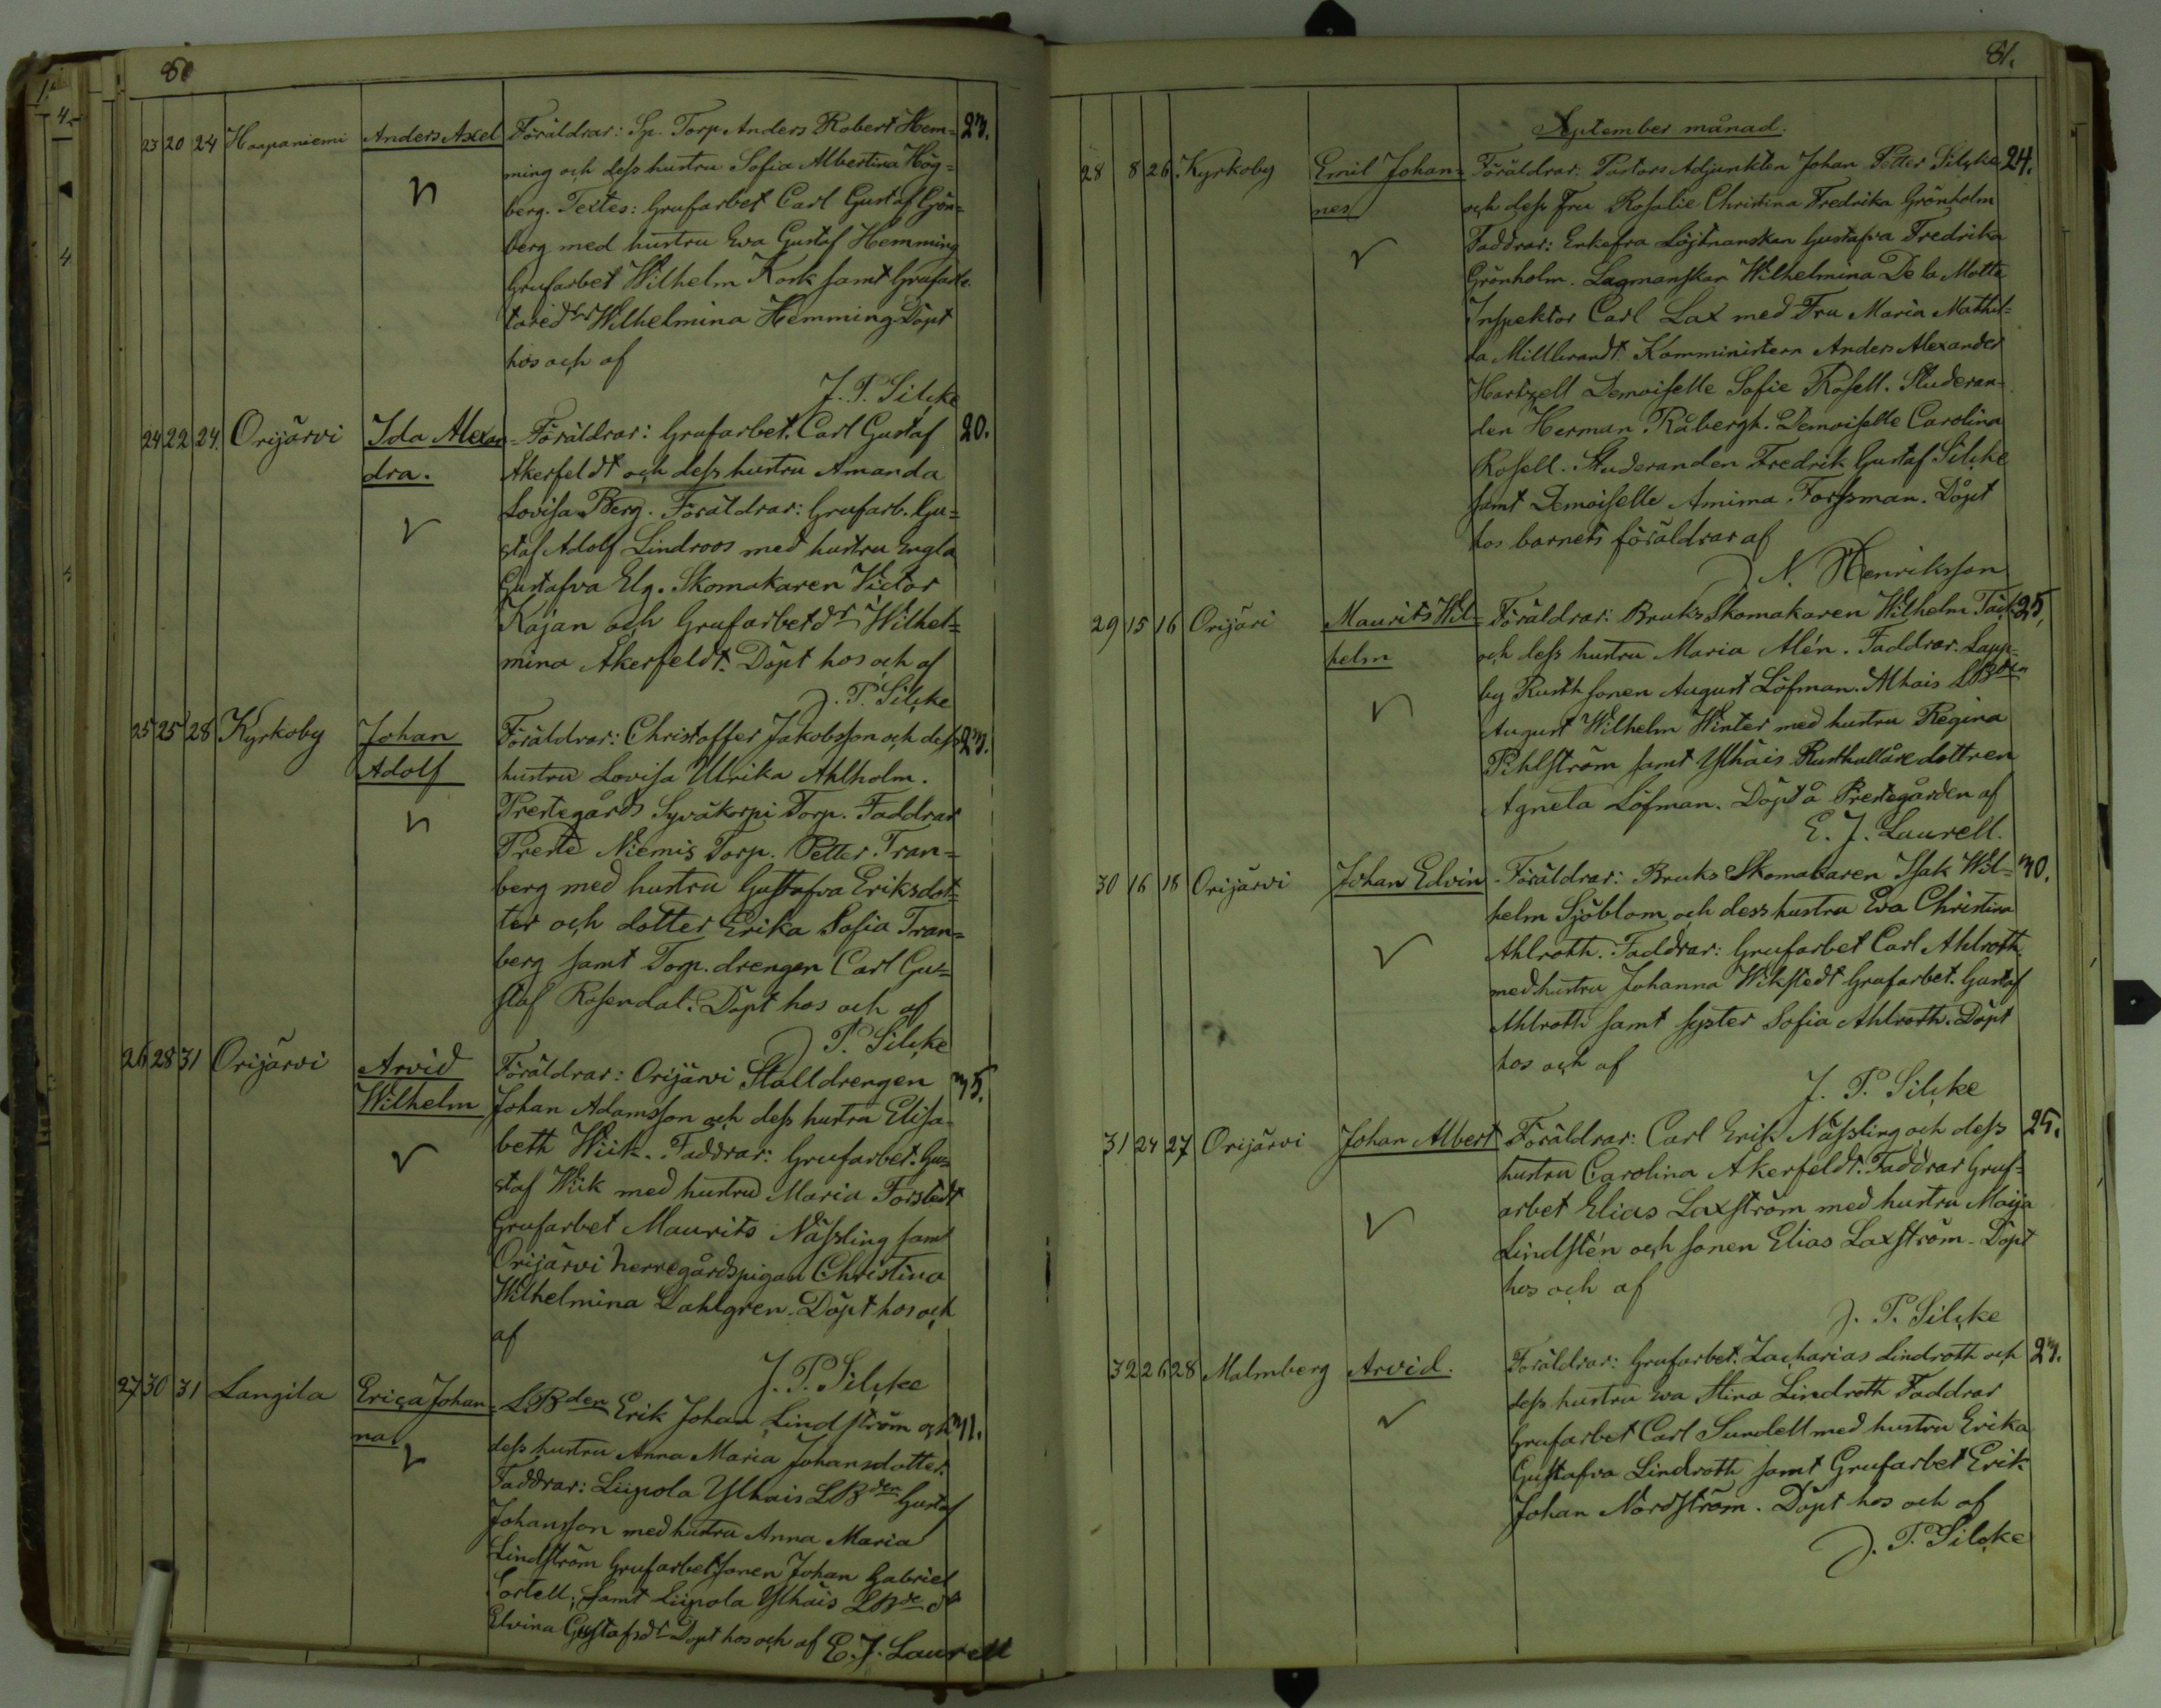 80
23 20 24 Haapaniemi Anders Axel Föräldrar: Sp. Torp Anders Robert Hem= 23.
ming och dess hustru Sofia Albertina Hög=
berg. Testes: Grufarbet Carl Gustaf Grön=
berg med hustru Eva Gustaf Hemming
Grufarbet Wilhelm Kork samt Grufarbe
Wilhelmina Hemming Döpt
hos och af
J. P. Silcke
24 22 24. Orijärvi Ida Alexan= Föräldrar: Grufarbet. Carl Gustaf 20.
dra. Åkerfeldt och dess hustru Amanda
Lovisa Berg. Föräldrar: Grufarb. Gu=
staf Adolf Lindroos med hustru Engla
Gustafva Elg. Skomakaren Victor
Kajan och Grufarbetdr Wilhel=
mina Åkerfeldt. Döpt hos och af
J. P. Silcke
25 25 28 Kyrkoby Johan Föräldrar: Christoffer Jakobsson och dess 23.
Adolf hustru Lovisa Ulrika Ahlholm.
Prestegårds Syväkorpi Torp. Faddrar
Preste Niemis Torp. Petter Tran=
berg med hustru Gustafva Eriksdot=
ter och dotter Erika Sofia Tran=
berg samt Torp. drengen Carl Gu=
staf Rosendal. Döpt hos och af
J. P. Silcke
26 28 31 Orijärvi Arvid Föräldrar: Orijärvi Stalldrengen 35.
Wilhelm Johan Adamsson och dess hustru Elisa=
beth Wiik. Faddrar: Grufarbet. Gu=
staf Wiik med hustru Maria Forstedt
Grufarbet Maurits Nässling samt
Orijärvi herregårdspigan Christina
Wilhelmina Dahlgren. Döpt hos och
af
J. P. Silcke
27 30 31 Langila Erica Johan= LBden Erik Johan Lindström och 31.
na. dess hustru Anna Maria Johansdotter.
Faddrar: Liipola Ylhais LBden Gustaf
Johansson med hustru Anna Maria
Lindström Grufarbetsonen Johan Gabriel
Sortell, samt Liipola Ylhäis LBde dr
Elvina Gustafsdr Döpt hos och af E. J. Laurell
81.
September månad.
28 8 26 Kyrkoby Emil Johan= Föräldrar: Pastors Adjunkten Johan Petter Silcke 24.
nes och dess Fru Rosalie Christina Fredrika Grönholm
Faddrar: Enkefru Löjtnanskan Gustafva Fredrika
Grönholm. Lagmanskan Wilhelmina De la Motte
Inspektor Carl Lax med Fru Maria Mathil=
da Millbrandt. Kamministern Anders Alexander
Hartzell Demoiselle Sofie Rosell. Studeran=
den Herman Råbergh. Demoiselle Carolina
Rosell. Studeranden Fredrik Gustaf Silcke
samt Demoiselle Amima Forssman. Döpt
hos barnets föräldrar af
J. N. Henriksson
29 15 16 Orijäri Maurits Wil= Föräldrar: Bruks Skomakaren Wilhelm Täck 25.
helm och dess hustru Maria Alén. Faddrar. Lapp=
by Rusth sonen August Löfman. Alhais LBden
August Wilhelm Winter med hustru Regina
Pihlström samt Ylhäis Rusthållaredottren
Agneta Löfman. Döpt å Prestegården af
E. J. Laurell.
30 16 18 Orijärvi Johan Edvin Föräldrar: Bruks Skomakaren Isak Wil= 30.
helm Sjöblom och dess hustru Eva Christina
Ahlroth. Faddrar: Grufarbet Carl Ahlroth.
med hustru Johanna Wikstedt Grufarbet. Gustaf
Ahlroth samt syster Sofia Ahlroth. Döpt
hos och af
J. P. Silcke
31 24 27 Orijärvi Johan Albert Föräldrar: Carl Erik Nässling och dess 25.
hustru Carolina Åkerfeldt. Faddrar Gruf=
arbet Elias Laxström med hustru Maija
Lindstén och sonen Elias Laxström. Döpt
hos och af
J. P. Silcke
32 26 28 Malmberg Arvid. Föräldrar: Grufarbet. Zacharias Lindroth och 23.
dess hustru Eva Stina Lindroth Faddrar
Grufarbet Carl Sundell med hustru Erika
Gustafva Lindroth samt Grufarbet Erik
Johan Nordström. Döpt hos och af
J. P. Silcke